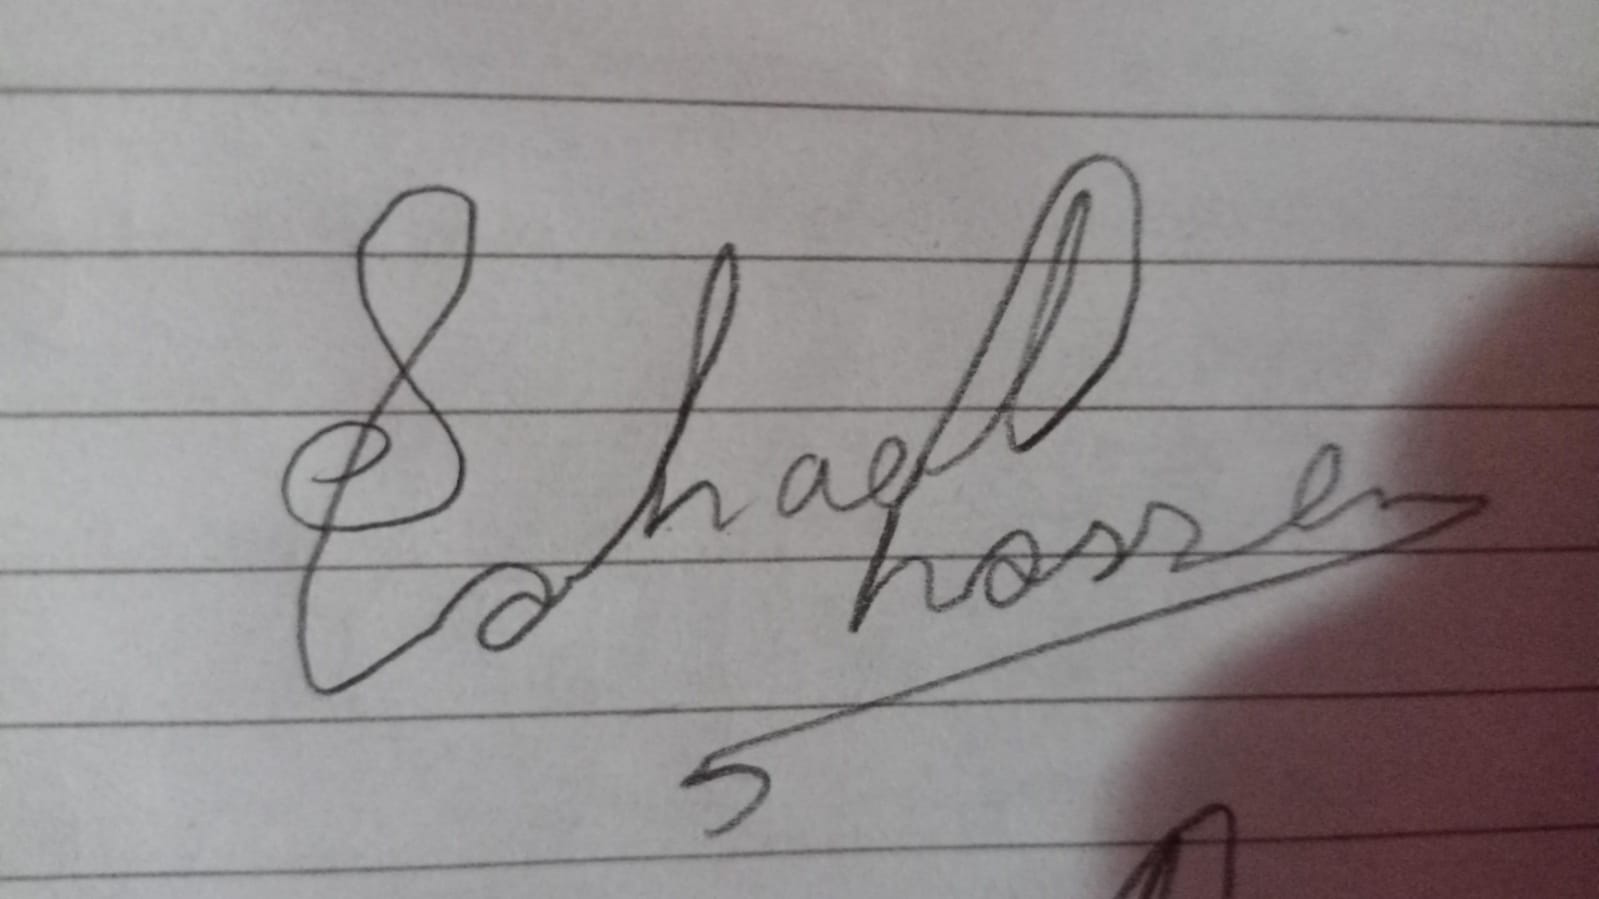 Sohael
hossen